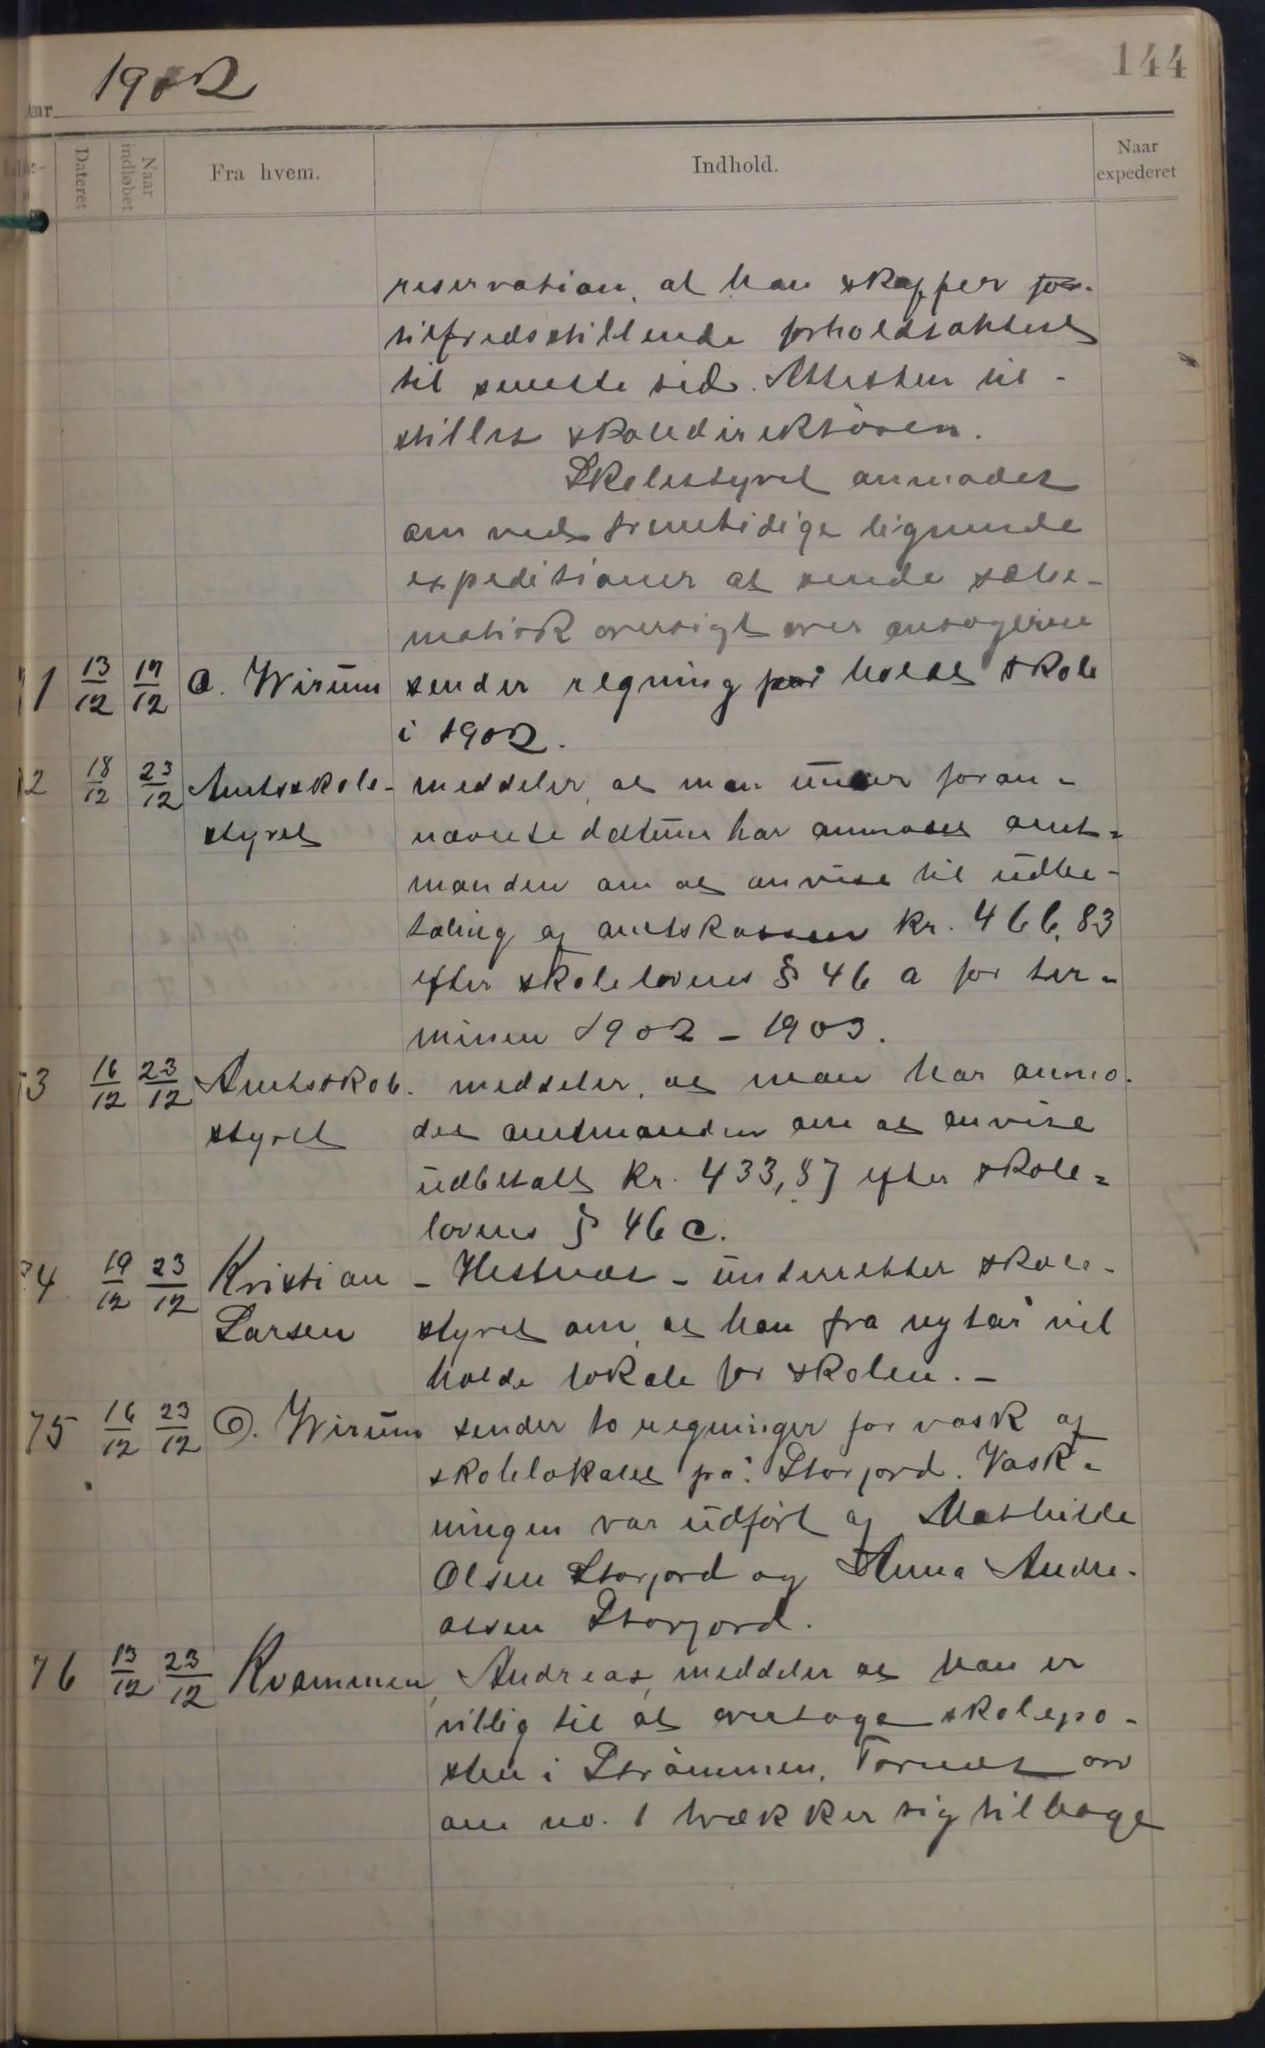 144
1902
Dateret
Naar indløbet
Fra hvem.
Indhold.
Naar expederet
reservation, at han skaffer for-
tilfredsstillende forholdsattest
til seneste tid. Attesten til-
stilles skoledirektøren.
Skolestyret anmodes
om ved fremtidige lignende
expeditioner at sende skhe-
matisk oversigt over ansøgerne
1 13/12 17/12 O. Wirum sender regning på holdt skole
i 1902.
2 18/12 23/12 Amtsskole- meddeler, at man under foran-
styret nævnte datum har anmodet amt-
manden om at anvise til udbe-
taling af amtskassen kr. 466,83
efter skolelovens § 46 a for ter-
minen 1902 - 1903.
3 16/12 23/12 Amtsskole. meddeler, at man har anmo-
styret det amtmanden om at anvise
udbetalt kr. 433,87 efter skole-
lovens § 46 c.
4 19/12 23/12 Kristian - Hestnes - underretter skole-
Larsen styret om, at han fra nytår vil
holde lokale for skolen. -
75 16/12 23/12 O. Wirum sender to regninger for vask af
skolelokalet på Storjord. Vask-
ningen var udført af Mathilde
Olsen Storjord og Anna Andre-
assen Storjord.
76 13/12 23/12 Kvammen, Andreas, meddeler at han er
villig til at overtage skolepo-
sten i Strømmen, Tornes
om no. 1 trækker sig tilbage